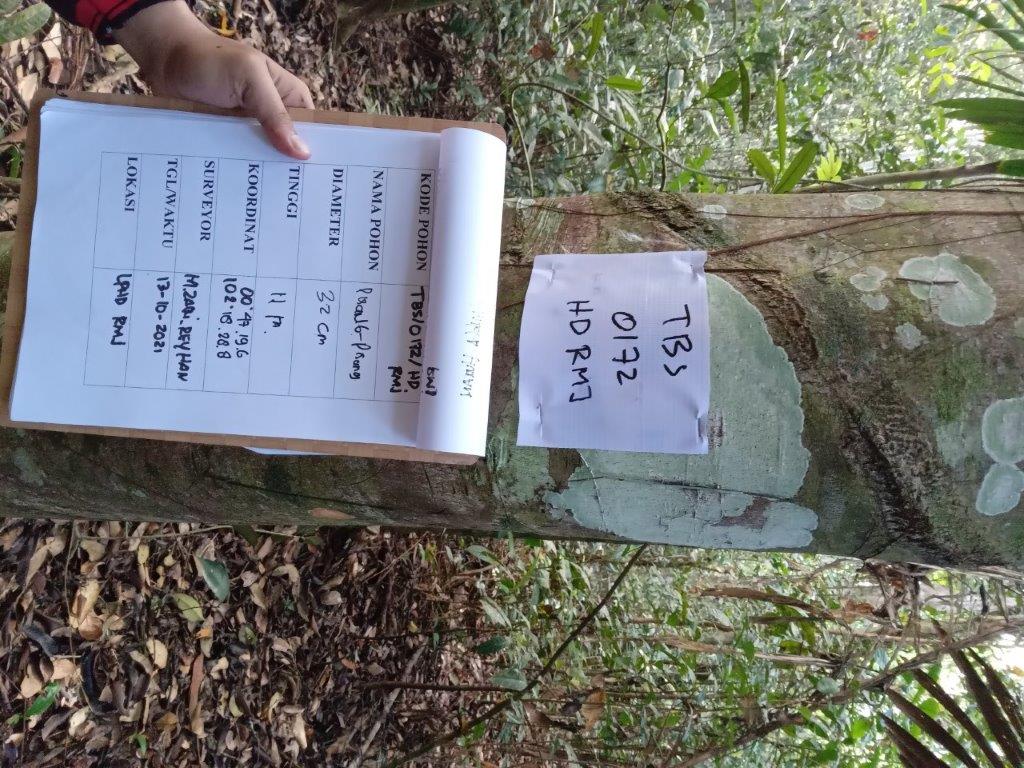 TBS
0172
HD RMJ
KODE POHON TBS/0172/HD.
RMJ
NAMA POHON
DIAMETER 32 cm
TINGGI 11 M.
KOORDINAT 00°47.19.6
102°18.28.8
SURVEYOR M.ZAKI.REYHAN
TGL/WAKTU 13-10-2021
LOKASI LPHD RMJ